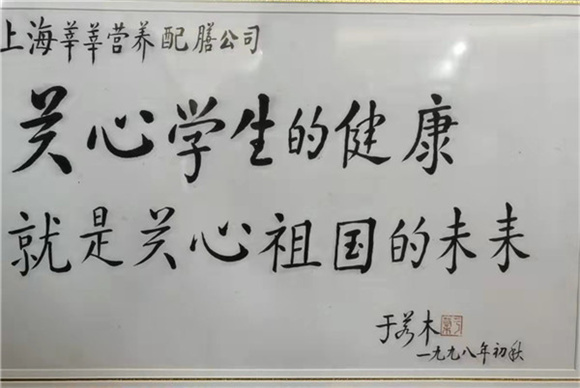 上海莘莘营养配膳公司
关心学生的健康
就是关心祖国的未来
于若木
一九九八年初秋